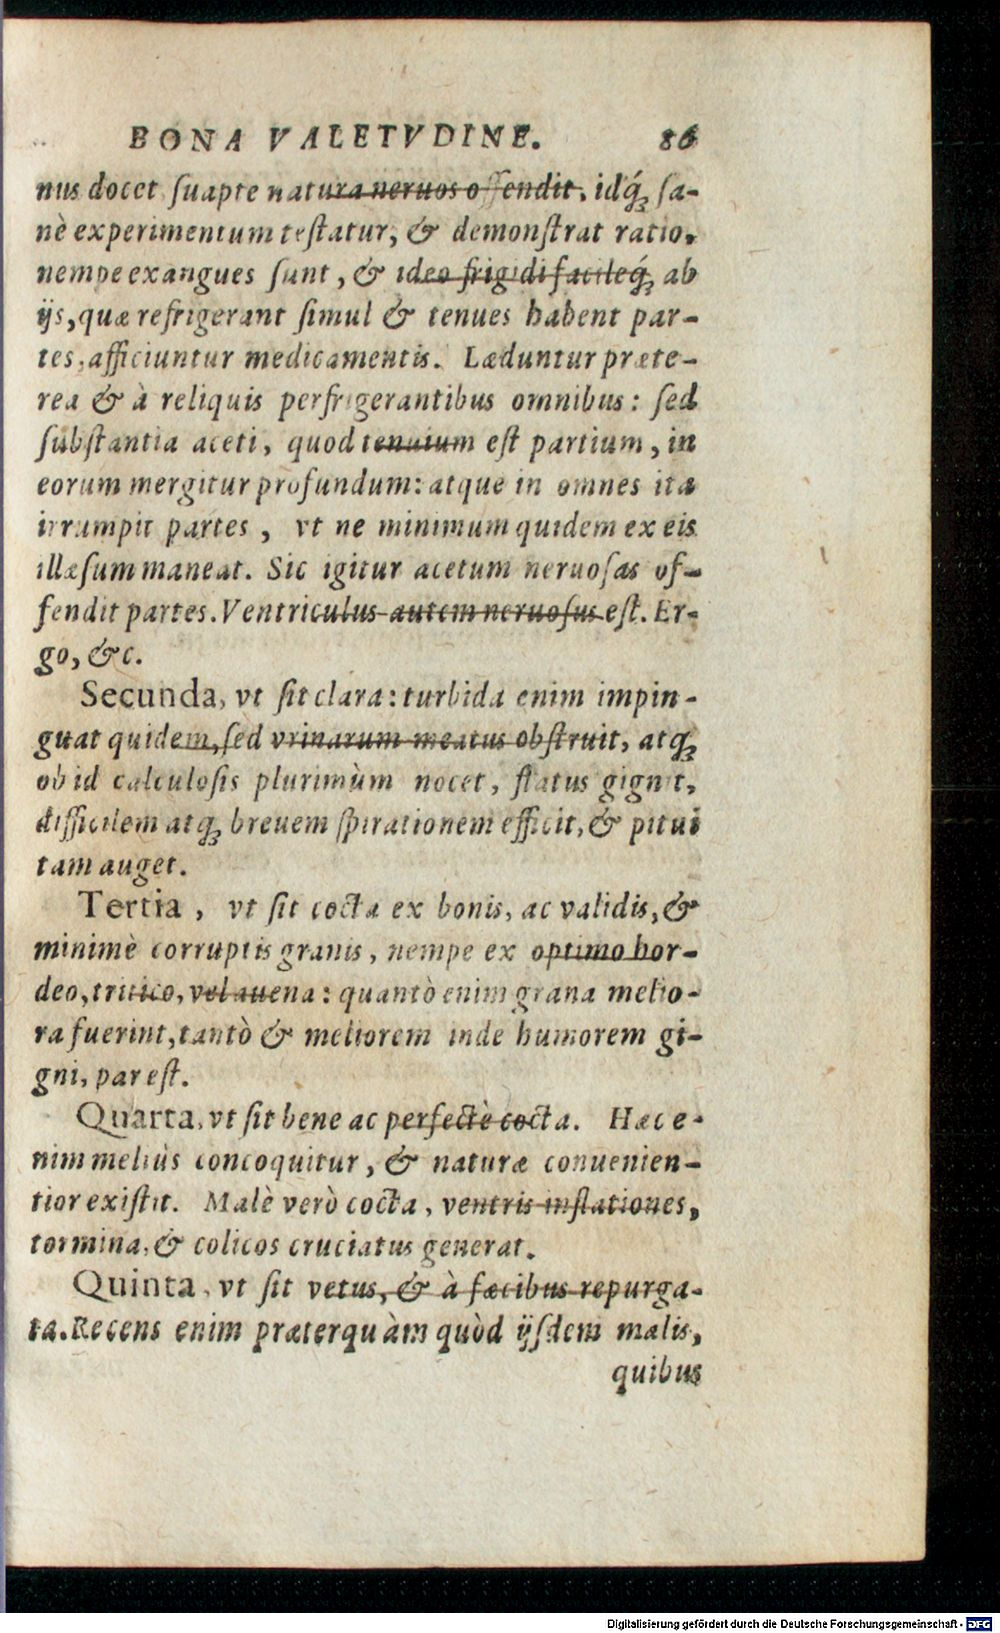 BONA VALETVDINE. 86
nus docet suapte natura neruos offendit, idq́ꝫ sa-
nè experimentum testatur, & demonstrat ratio.
nempe exangues sunt, & ideo frigidi facileq́ꝫ ab
ijs, quæ refrigerant simul & tenues habent par-
tes, afficiuntur medicamentis. Læduntur præte-
rea & à reliquis perfrigerantibus omnibus: sed
substantia aceti, quod tenuium est partium, in
eorum mergitur profundum: atque in omnes ita
irrumpit partes, vt ne minimum quidem ex eis
illæsum maneat. Sic igitur acetum neruosas of-
fendit partes. Ventriculus autem neruosus est. Er-
go, &c.
Secunda, vt sit clara: turbida enim impin-
guat quidem, sed vrinarum meatus obstruit, atqꝫ
ob id calculosis plurimùm nocet, flatus gignit,
difficilem atqꝫ breuem spirationem efficit, & pitui
tam auget.
Tertia, vt sit cocta ex bonis, ac validis, &
minimè corruptis granis, nempe ex optimo hor-
deo, tritico, vel auena: quantò enim grana melio-
ra fuerint, tantò & meliorem inde humorem gi-
gni, par est.
Quarta, vt sit bene ac perfectè cocta. Hæc e-
nim meliùs concoquitur, & naturæ conuenien-
tior existit. Malè verò cocta, ventris inflationes,
tormina, & colicos cruciatus generat.
Quinta, vt sit vetus, & à fæcibus repurga-
ta. Recens enim præterquàm quòd ijsdem malis,
quibus
Digitalisierung gefördert durch die Deutsche Forschungsgemeinschaft - DFG